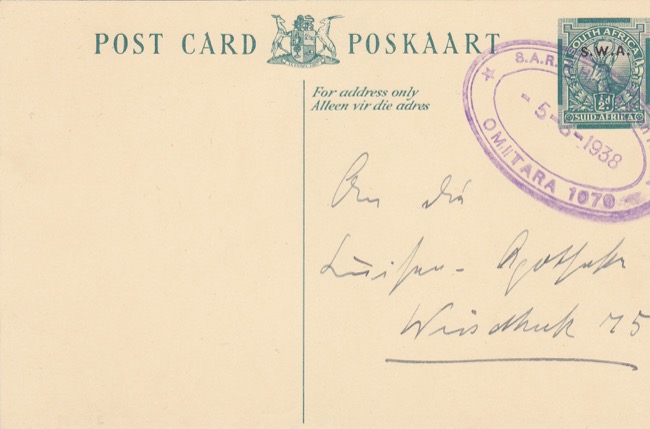 POST CARD POSKAART
For address only
Alleen vir die adres
SOUTH AFRICA
S.W.A.
½d
SUID AFRIKA
S.A.R.
-5- -1938
OMITARA 1070
An die
Luisen-Apotheke
Windhuk